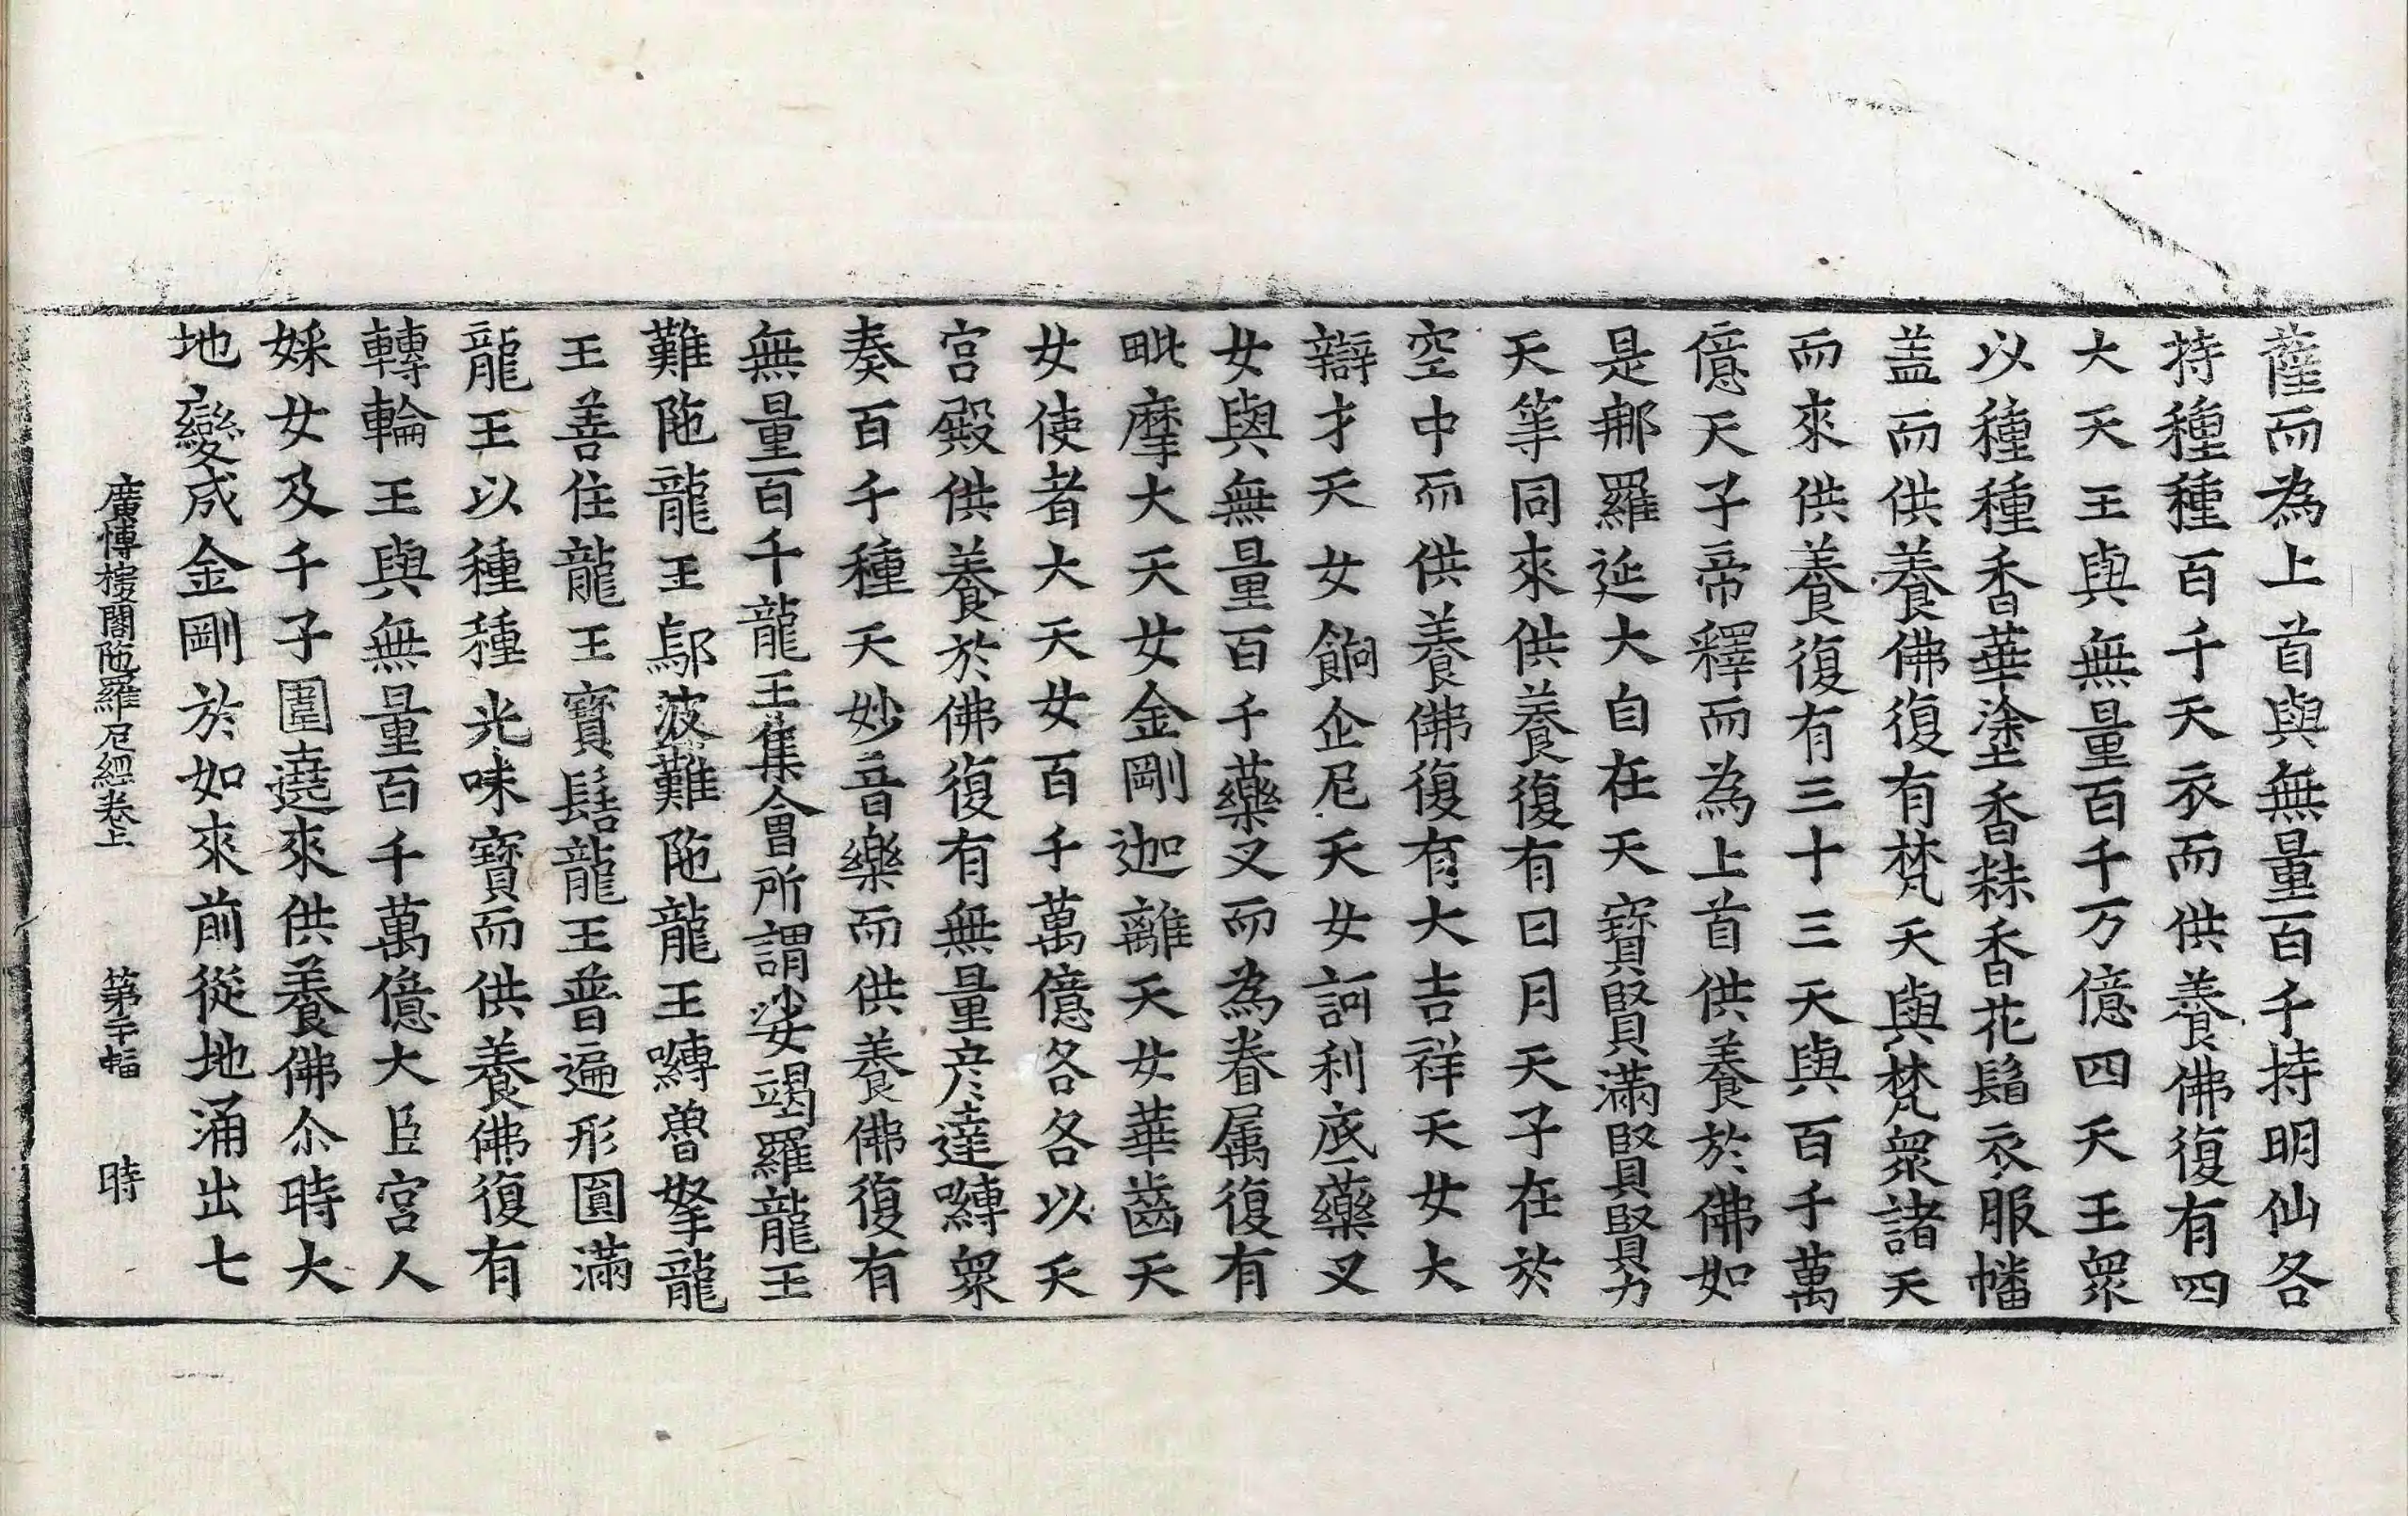 薩而為上首與無量百千持明仙各
持種種百千天衣而供養佛復有四
大天王與無量百千万億四天王眾
以種種香華塗香粖香花鬘衣服幡
盖而供養佛復有梵天與梵眾諸天
而來供養復有三十三天與百千萬
億天子帝釋而為上首供養於佛如
是那羅延大自在天寶賢滿賢賢力
天等同來供養復有日月天子在於
空中而供養佛復有大吉祥天女大
辯才天女餉企尼天女訶利底藥叉
女與無量百千藥叉而為眷属復有
毗摩大天女金剛迦離天女華齒天
女使者大天女百千萬億各各以天
宮殿供養於佛復有無量彥達嚩眾
奏百千種天妙音樂而供養佛復有
無量百千龍王集會所謂娑竭羅龍王
難陁龍王鄔波難陁龍王嚩嚕拏龍
王善住龍王寶髻龍王普遍形圓滿
龍王以種種光味寶而供養佛復有
轉輪王與無量百千萬億大臣宮人
婇女及千子圍遶來供養佛尒時大
地變成金剛於如來前從地涌出七
廣愽樓閣陁羅尼經卷上 第幅 時